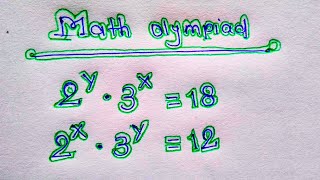 Math olympiad
2^y · 3^x = 18
2^x · 3^y = 12